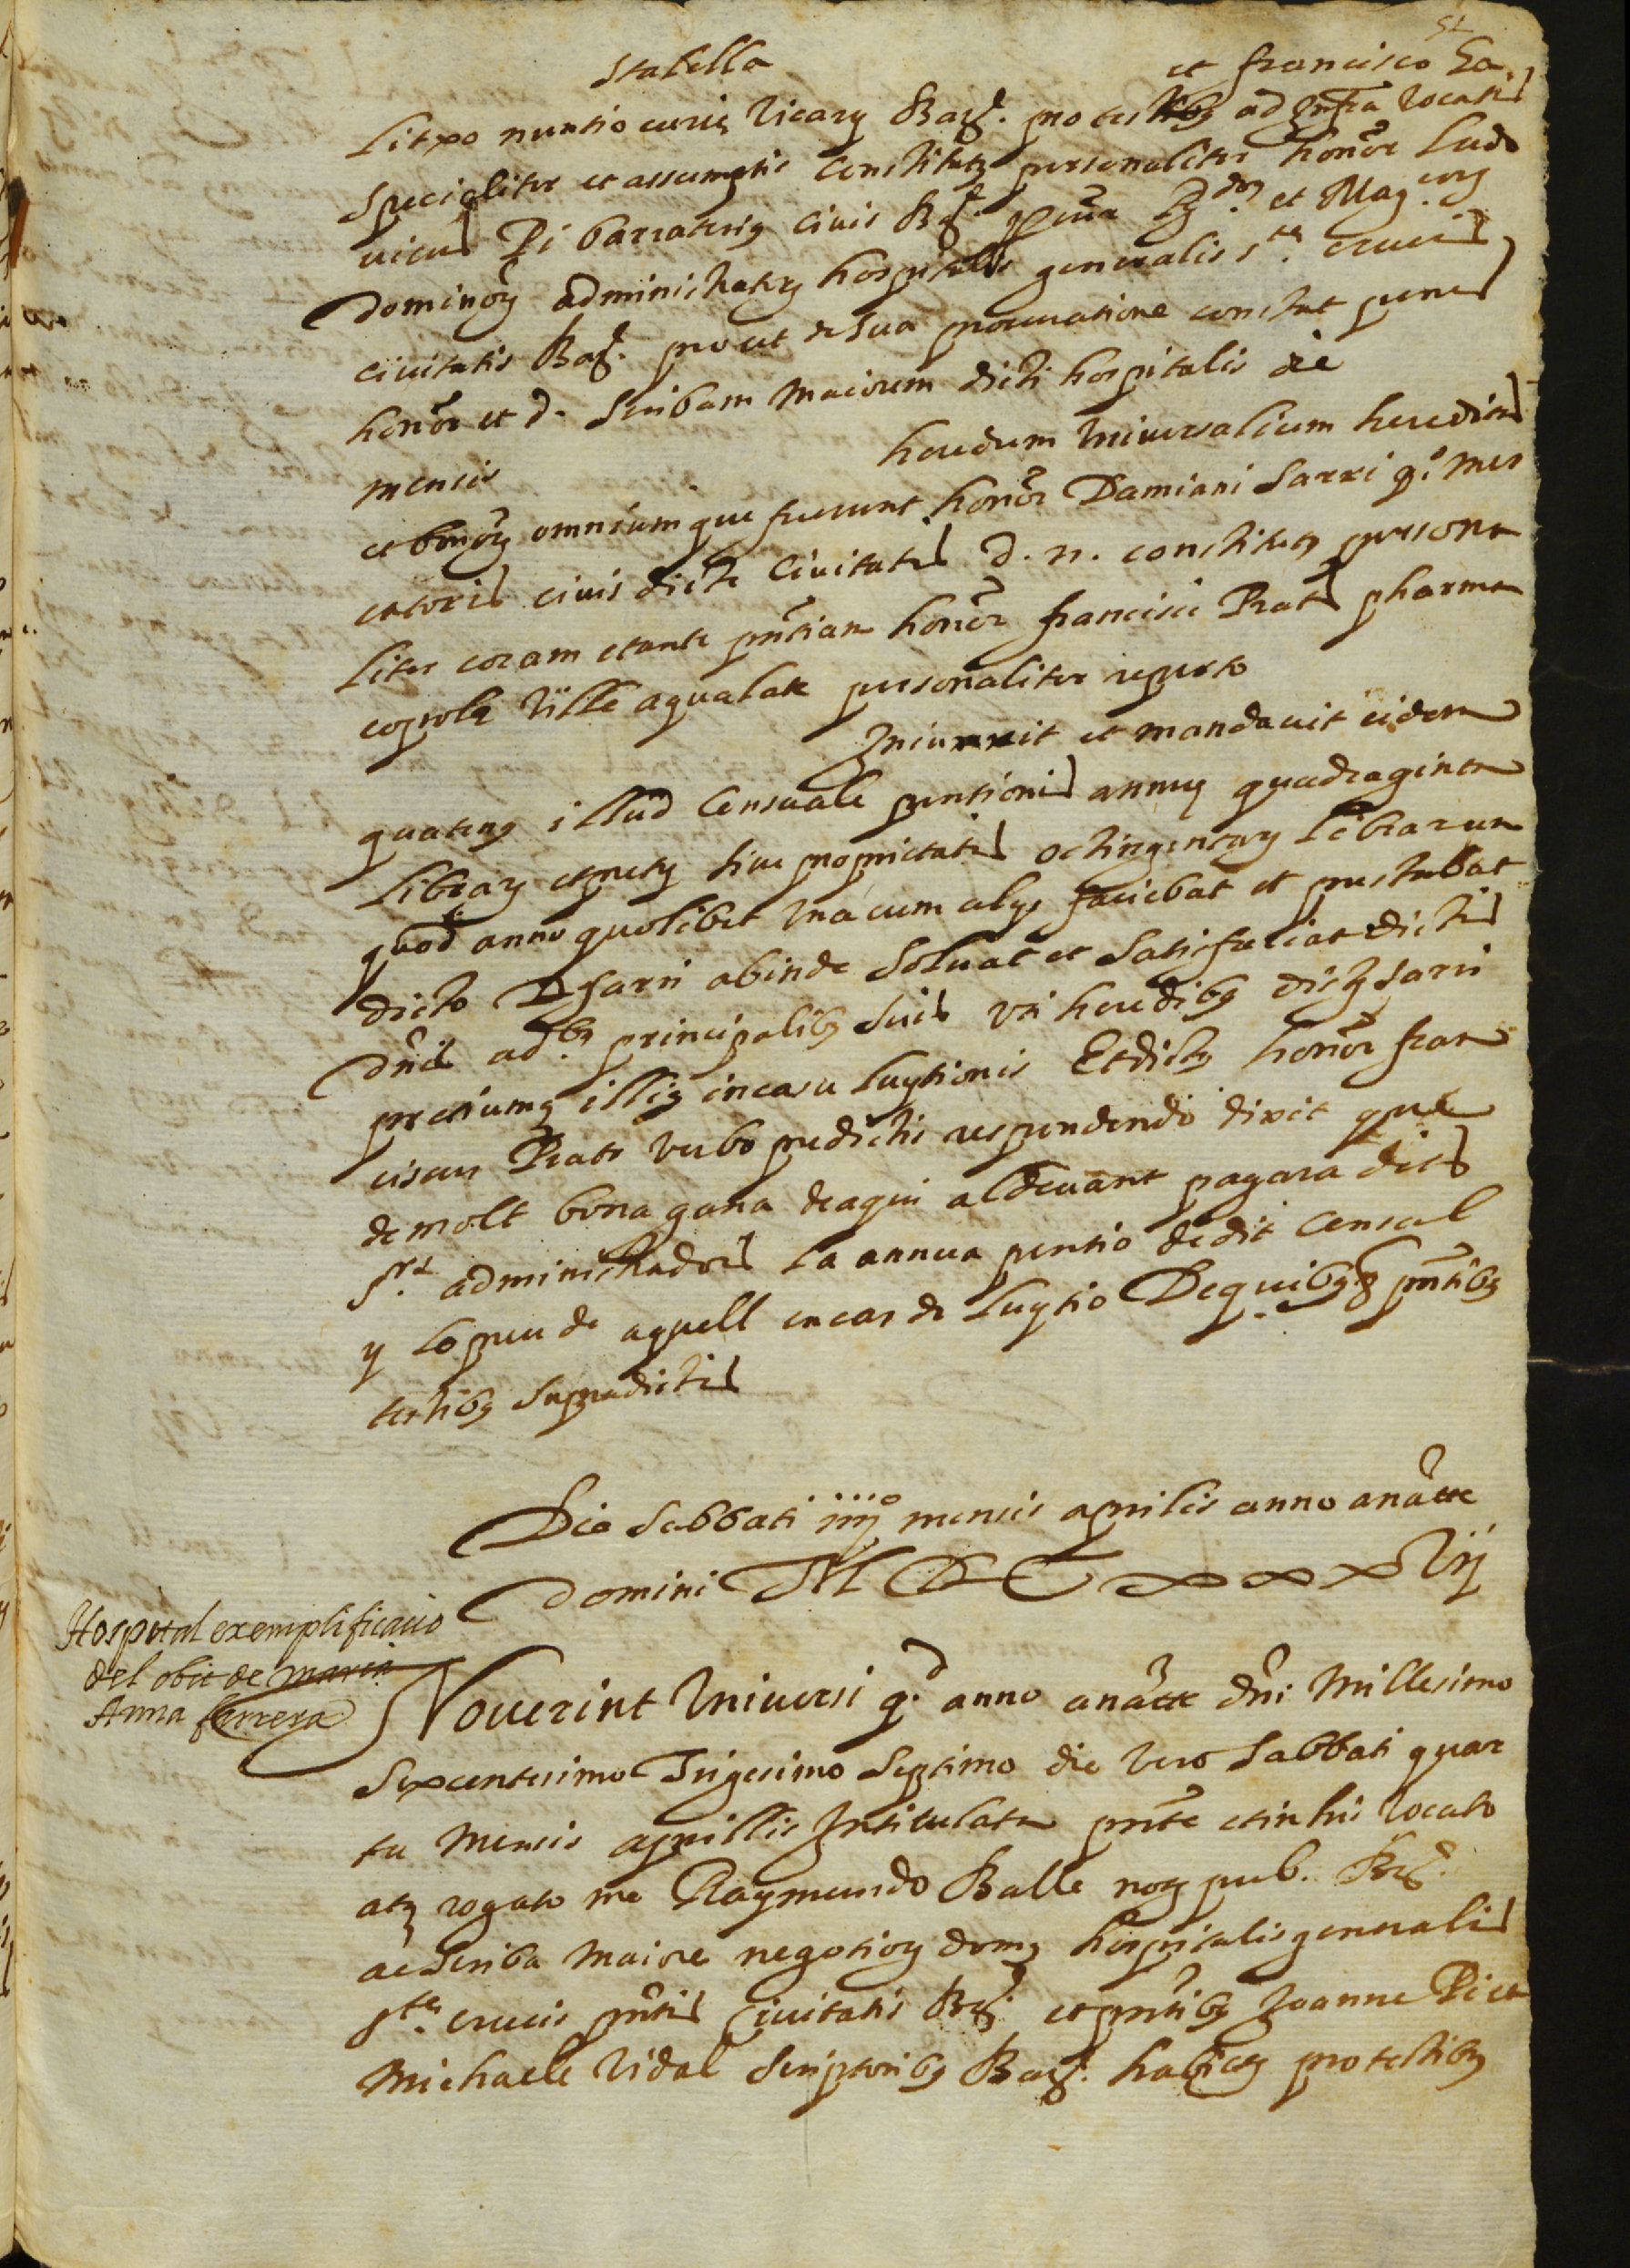 51
Stabella et francisco Ga
litxo nuntio curie Vicarij Barⁿ. pro testibꝯ ad infra vocatis
specialiter et assumptis constitutꝯ personaliter honor̃ Ludo
vicus Pi barraterij civis Barⁿ. et Mag.
dominor̃ administrator̃ hospitalis generalis s.ᵗᵉ crucis
civitatis Barⁿ. prout de sua procuratione constat penes
honor̃ et d. scribam maiorem dicti hospitalis die
mensis heredum universalium heredita
et bonor̃ omnium que fuerunt honor̃ Damiani Sarri q.º mer
catoris civis dicte civitatis d. n. constitutꝯ persona
liter coram et ante pñtiam honor̃ francisci Prats pharma
copola ville aqualate personaliter reperto
Iniunxit et mandavit eidem
quatenꝯ illud censuale pentionis annuꝯ quadraginta
librar̃ et pretij sive proprietatis octingentar̃ librarum
quod anno quolibet una cum alijs faciebat et prestabat
dicto D Sarri abinde solvat et satisfaciat dictis
dñis ad.ᵇꝯ principalibꝯ suis uti heredibꝯ dictꝯ Sarri
pretiumqꝫ illiꝯ in casu luytionis Et dictꝯ honor̃ fran
ciscus Prats verbo predictis respondendo dixit que
de molt bona gana de aqui al devant pagara dits
S.ʳˢ administradors la annua pentio de dit censal
y lo preu de aquell en cas de luytio De quibꝯ ꝫ pñtibꝯ
testibꝯ supradictis
Die Sabbati iiij.º mensis aprilis anno a natte
Domini M DC XXXVij
Hospital exemplificacio
del obit de maria
Anna ferrera
Noverint Universi q.ᵈ anno a natte dñi Millesimo
Sexcentesimo Trigesimo Septimo die vero Sabbati quar
ta mensis aprillis Intitulata pñte et in his vocato
atqꝫ rogato me Raymundo Balle notꝯ pub. Barⁿ.
ac scriba maiore negotior̃ domꝯ hospitalis generalis
s.ᵗᵉ crucis pñtis civitatis Barⁿ. et pñtibꝯ Joanne Pi et
Michaele Vidal scriptoribꝯ Barⁿ. habitꝯ pro testibꝯ